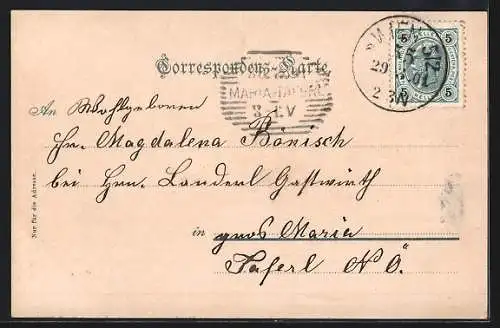 Correspondenz-Karte
MARIA-TAFERL
3 IV
29
5 5
5 5
An Wohlgeboren
Fr. Magdalena Bönisch
bei Hrn. Landerl Gastwirth
in gros Maria
Taferl N Ö.
Nur für die Adresse.